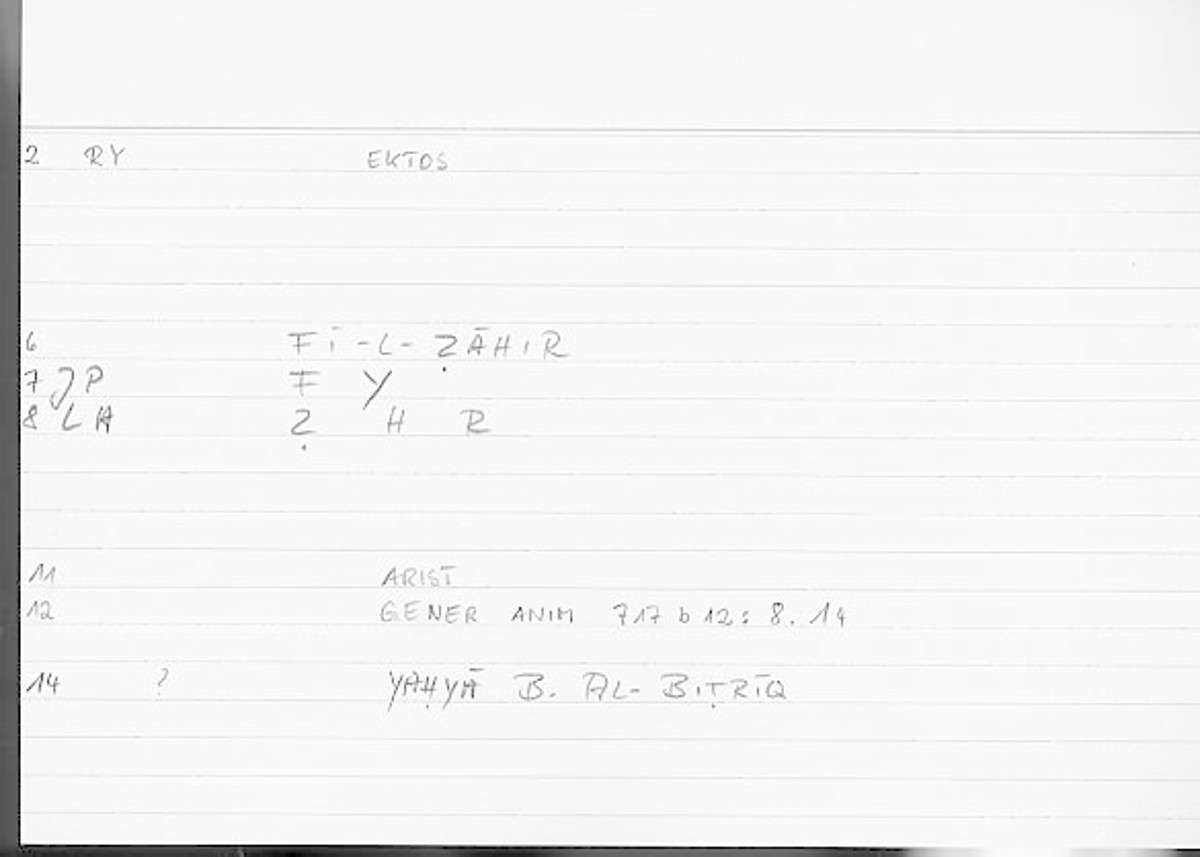 2 RY EKTOS
6 FĪ-L-ẒĀHIR
7 JP F Y
8 LA Ẓ H R
11 ARIST
12 GENER ANIM 717 b 12: 8.14
14 ? YAḤYĀ B. AL-BIṬRĪQ